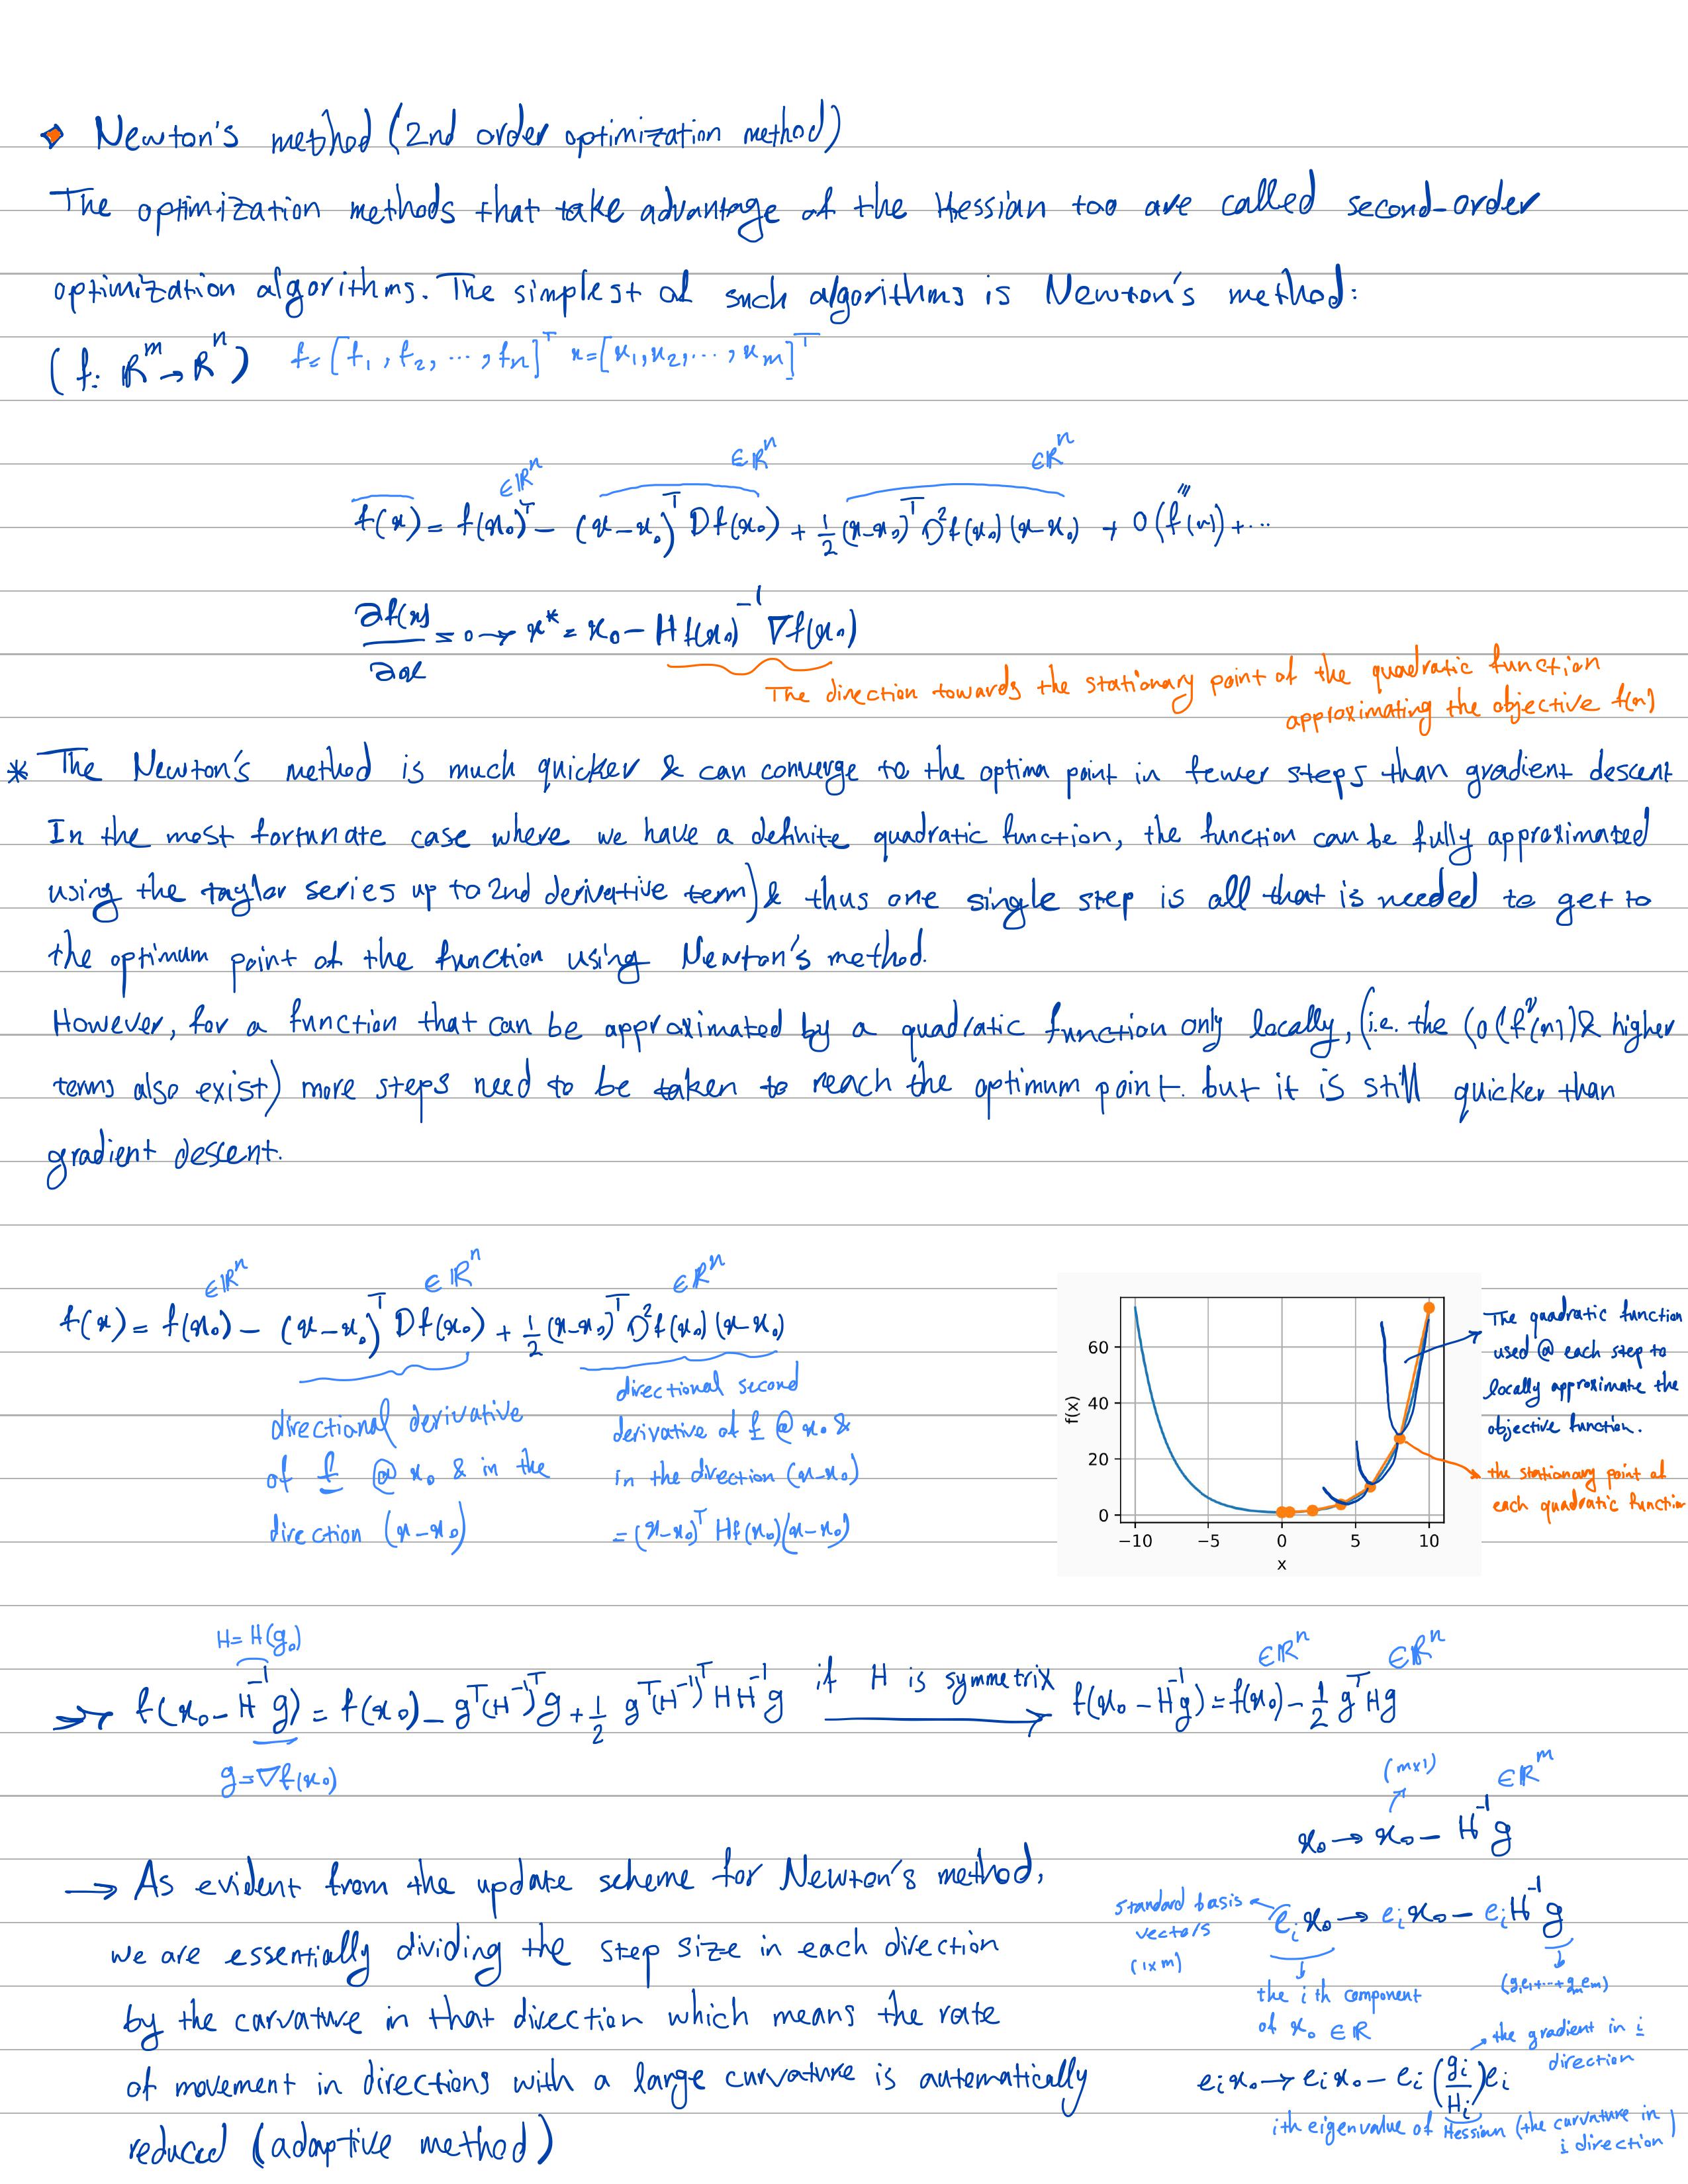 Newton's method (2nd order optimization method)
The optimization methods that take advantage of the Hessian too are called second-order
optimization algorithms. The simplest of such algorithms is Newton's method:
(f: ℝᵐ → ℝⁿ)   f = [f₁, f₂, ..., fn]ᵀ   x = [x₁, x₂, ..., xm]ᵀ
∈ℝⁿ   ∈ℝⁿ   ∈ℝⁿ
f(x) = f(x₀)ᵀ − (x−x₀)ᵀ Df(x₀) + 1/2 (x−x₀)ᵀ D²f(x₀)(x−x₀) + O(f'''(x)) + ...
∂f(x)/∂x = 0 → x* = x₀ − Hf(x₀)⁻¹ ∇f(x₀)
The direction towards the stationary point of the quadratic function
approximating the objective f(x)
* The Newton's method is much quicker & can converge to the optima point in fewer steps than gradient descent
In the most fortunate case where we have a definite quadratic function, the function can be fully approximated
using the taylor series up to 2nd derivative term) & thus one single step is all that is needed to get to
the optimum point of the function using Newton's method.
However, for a function that can be approximated by a quadratic function only locally, (i.e. the (O(f'''(x)) & higher
terms also exist) more steps need to be taken to reach the optimum point. but it is still quicker than
gradient descent.
∈ℝⁿ   ∈ℝⁿ   ∈ℝⁿ
f(x) = f(x₀) − (x−x₀)ᵀ Df(x₀) + 1/2 (x−x₀)ᵀ D²f(x₀)(x−x₀)
directional derivative
of f @ x₀ & in the
direction (x−x₀)
directional second
derivative of f @ x₀ &
in the direction (x−x₀)
= (x−x₀)ᵀ Hf(x₀)(x−x₀)
f(x)
60
40
20
0
−10 −5 0 5 10
x
The quadratic function
used @ each step to
locally approximate the
objective function.
the stationary point of
each quadratic function
H = H(g₀)
→ f(x₀ − H⁻¹g) = f(x₀) − gᵀ(H⁻¹)ᵀg + 1/2 gᵀ(H⁻¹)ᵀHH⁻¹g   if H is symmetrix →   f(x₀ − H⁻¹g) = f(x₀) − 1/2 gᵀHg
∈ℝⁿ   ∈ℝⁿ
g = ∇f(x₀)
(m×1)   ∈ℝᵐ
x₀ → x₀ − H⁻¹g
→ As evident from the update scheme for Newton's method,
we are essentially dividing the step size in each direction
by the carvature in that direction which means the rate
of movement in directions with a large curvature is automatically
reduced (adaptive method)
standard basis
vectors
(1×m)
eᵢx₀ → eᵢx₀ − eᵢH⁻¹g
the ith component
of x₀ ∈ℝ
(g₁e₁+...+gmem)
the gradient in i
direction
eᵢx₀ → eᵢx₀ − eᵢ(gᵢ/Hᵢ)eᵢ
ith eigenvalue of Hessian (the carvature in
i direction)